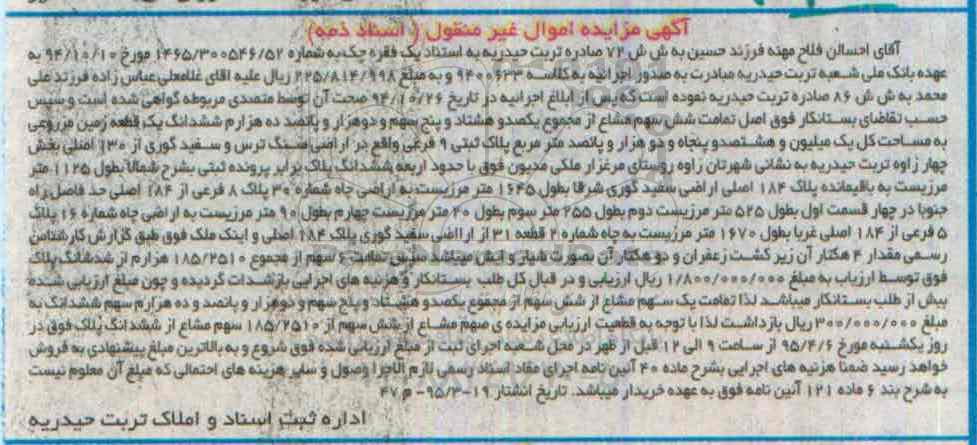 آگهی مزایده اموال غیر منقول (اسناد ذمه)
آقای احسالن فلاح مهنه فرزند حسین به ش ش ۷۲ صادره تربت حیدریه به استناد یک فقره چک به شماره ۱۴۶۵/۳۰۰۵۴۶/۵۲ مورخ ۹۴/۱۰/۱۰ به
عهده بانک ملی شعبه تربت حیدریه مبادرت به صدور اجرائیه به کلاسه ۹۴۰۰۶۳۳ و به مبلغ ۲۲۵/۸۱۴/۹۹۸ ریال علیه اقای غلامعلی عباس زاده فرزند علی
محمد به ش ش ۸۶ صادره تربت حیدریه نموده است که پس از ابلاغ اجرائیه در تاریخ ۹۴/۱۰/۲۶ صحت آن توسط متصدی مربوطه گواهی شده است و سپس
حسب تقاضای بستانکار فوق اصل تمامت شش سهم مشاع از مجموع یکصدو هشتاد و پنج سهم و دوهزار و پانصد ده هزارم ششدانگ یک قطعه زمین مزروعی
به مساحت کل یک میلیون و هشتصدو پنجاه و دو هزار و پانصد متر مربع پلاک ثبتی ۹ فرعی واقع در اراضی سنگ ترس و سفید گوری از ۱۳۰ اصلی بخش
چهار زاوه تربت حیدریه به نشانی شهرتان زاوه روستای مرغزار ملکی مدیون فوق با حدود اربعه ششدانگ پلاک برابر پرونده ثبتی بشرح شمالا بطول ۱۱۲۵ متر
مرزیست به باقیمانده پلاک ۱۸۴ اصلی اراضی سفید گوری شرقا بطول ۱۶۴۵ متر مرزیست به اراضی چاه شماره ۳۰ پلاک ۸ فرعی از ۱۸۴ اصلی حد فاصل راه
جنوبا در چهار قسمت اول بطول ۵۲۵ متر مرزیست دوم بطول ۲۵۵ متر سوم بطول ۲۰ متر مرزیست چهارم بطول ۹۰ متر مرزیست به اراضی چاه شماره ۱۶ پلاک
۵ فرعی از ۱۸۴ اصلی غربا بطول ۱۶۷۰ متر مرزیست به چاه شماره ۲ قطعه ۳۱ از ارااضی سفید گوری پلاک ۱۸۴ اصلی و اینک ملک فوق طبق گزارش کارشناس
رسمی مقدار ۴ هکتار آن زیر کشت زعفران و دو هکتار آن بصورت شیار و ایش میباشد سپس تمامت ۶ سهم از مجموع ۱۸۵/۲۵۱۰ هزارم از ششدانگ پلاک
فوق توسط ارزیاب به مبلغ ۱/۸۰۰/۰۰۰/۰۰۰ ریال ارزیابی و در قبال کل طلب بستانکار و هزینه های اجرایی بازداشت گردیده و چون مبلغ ارزیابی شده
بیش از طلب بستانکار میباشد لذا تمامت یک سهم مشاع از شش سهم از مجموع یکصدو هشتاد و پنج سهم و دوهزار و پانصد و ده هزارم سهم ششدانگ به
مبلغ ۳۰۰/۰۰۰/۰۰۰ ریال بازداشت لذا با توجه به قطعیت ارزیابی مزایده ی سهم مشاع از شش سهم از ۱۸۵/۲۵۱۰ سهم مشاع از ششدانگ پلاک فوق در
روز یکشنبه مورخ ۹۵/۴/۶ از ساعت ۹ الی ۱۲ قبل از ظهر در محل شعبه اجرای ثبت از مبلغ ارزیابی شده فوق شروع و به بالاترین مبلغ پیشنهادی به فروش
خواهد رسید ضمنا هزینه های اجرایی بشرح ماده ۴۰ آئین نامه اجرای مفاد اسناد رسمی لازم الاجرا وصول و سایر هزینه های احتمالی که مبلغ آن معلوم نیست
به شرح بند ۶ ماده ۱۲۱ آئین نامه فوق به عهده خریدار میباشد. تاریخ انتشار ۱۹-۹۵/۳- م ۴۷
اداره ثبت اسناد و املاک تربت حیدریه